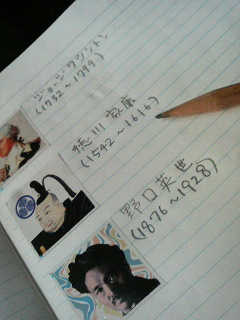 ジョージ・ワシントン
(1732〜1799)
徳川家康
(1542〜1616)
野口英世
(1876〜1928)